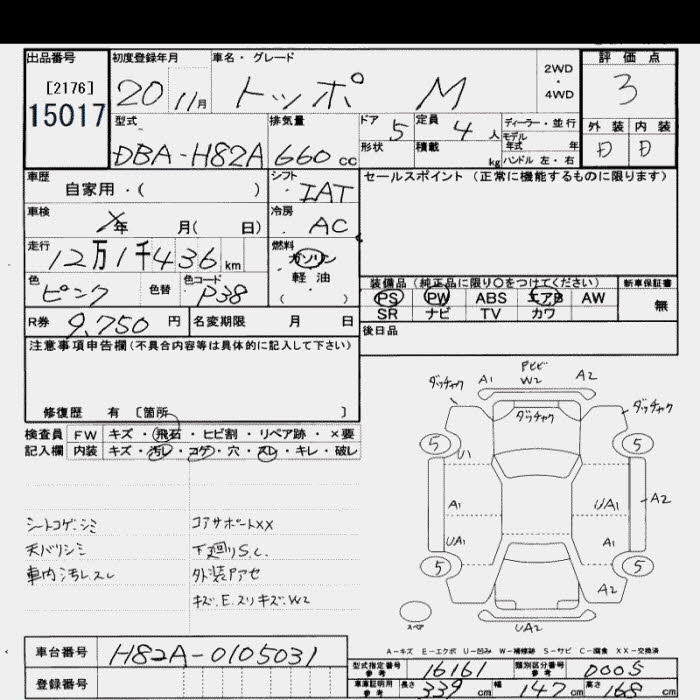 出品番号
[2176]
15017
初度登録年月
20 11月
車名・グレード
トッポ M
2WD・4WD
評価点
3
外装 内装
D D
型式
DBA-H82A
排気量
660 cc
ドア 5
定員 4 人
形状
積載 kg
ディーラー・並行
モデル年式 年
ハンドル 左・右
車歴
自家用・( )
シフト
IAT
セールスポイント (正常に機能するものに限ります)
車検
年 月( 日)
冷房
AC
走行
12万1千436 km
燃料
ガソリン
軽・油
( )
色
ピンク
色替
色コード
P38
装備品 (純正品に限り○をつけてください)
PS PW ABS エアB AW
SR ナビ TV カワ
新車保証書
無
R券 9,750 円
名変期限 月 日
後日品
注意事項申告欄(不具合内容等は具体的に記入して下さい)
修復歴 有 [箇所 ]
検査員記入欄
FW キズ・飛石・ヒビ割・リペア跡・×要
内装 キズ・汚レ・コゲ・穴・スレ・キレ・破レ
シートコゲ.シミ
天バリシミ
車内汚レ.スレ
コアサポートXX
下廻りS.C.
外装アセ
キズ.E.スリキズ.W2
ダッチャク
A1
W2
A2
ダッチャク
ダッチャク
5
5
U1
A1
UA1
A2
UA1
A1
5
5
A2
スペア
UA2
A-キズ E-エクボ U-凹み W-補修跡 S-サビ C-腐食 XX-交換済
車台番号 H82A-0105031
登録番号
型式指定番号 参考 16161
類別区分番号 参考 0005
車庫証明用 参考 長さ 339 cm 幅 147 cm 高さ 168 cm